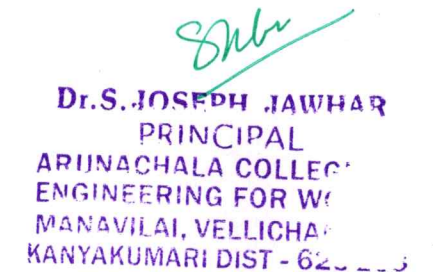 Dr.S.JOSEPH JAWHAR
PRINCIPAL
ARUNACHALA
ENGINEERING FOR
MANAVILAI,
KANYAKUMARI DIST -